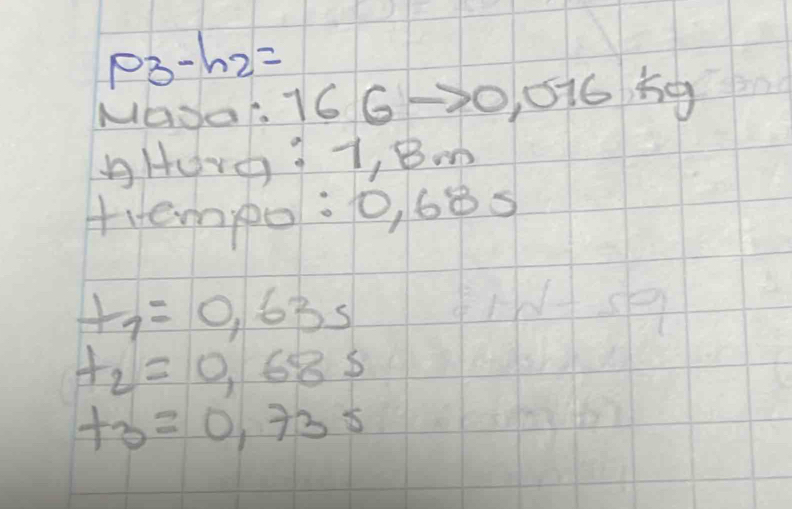 p3-h2=
Masa: 16 G → 0,016 kg
Altura: 1,8m
tiempo: 0,68 s
t1= 0,63s
t2= 0,68 s
t3= 0,73 s